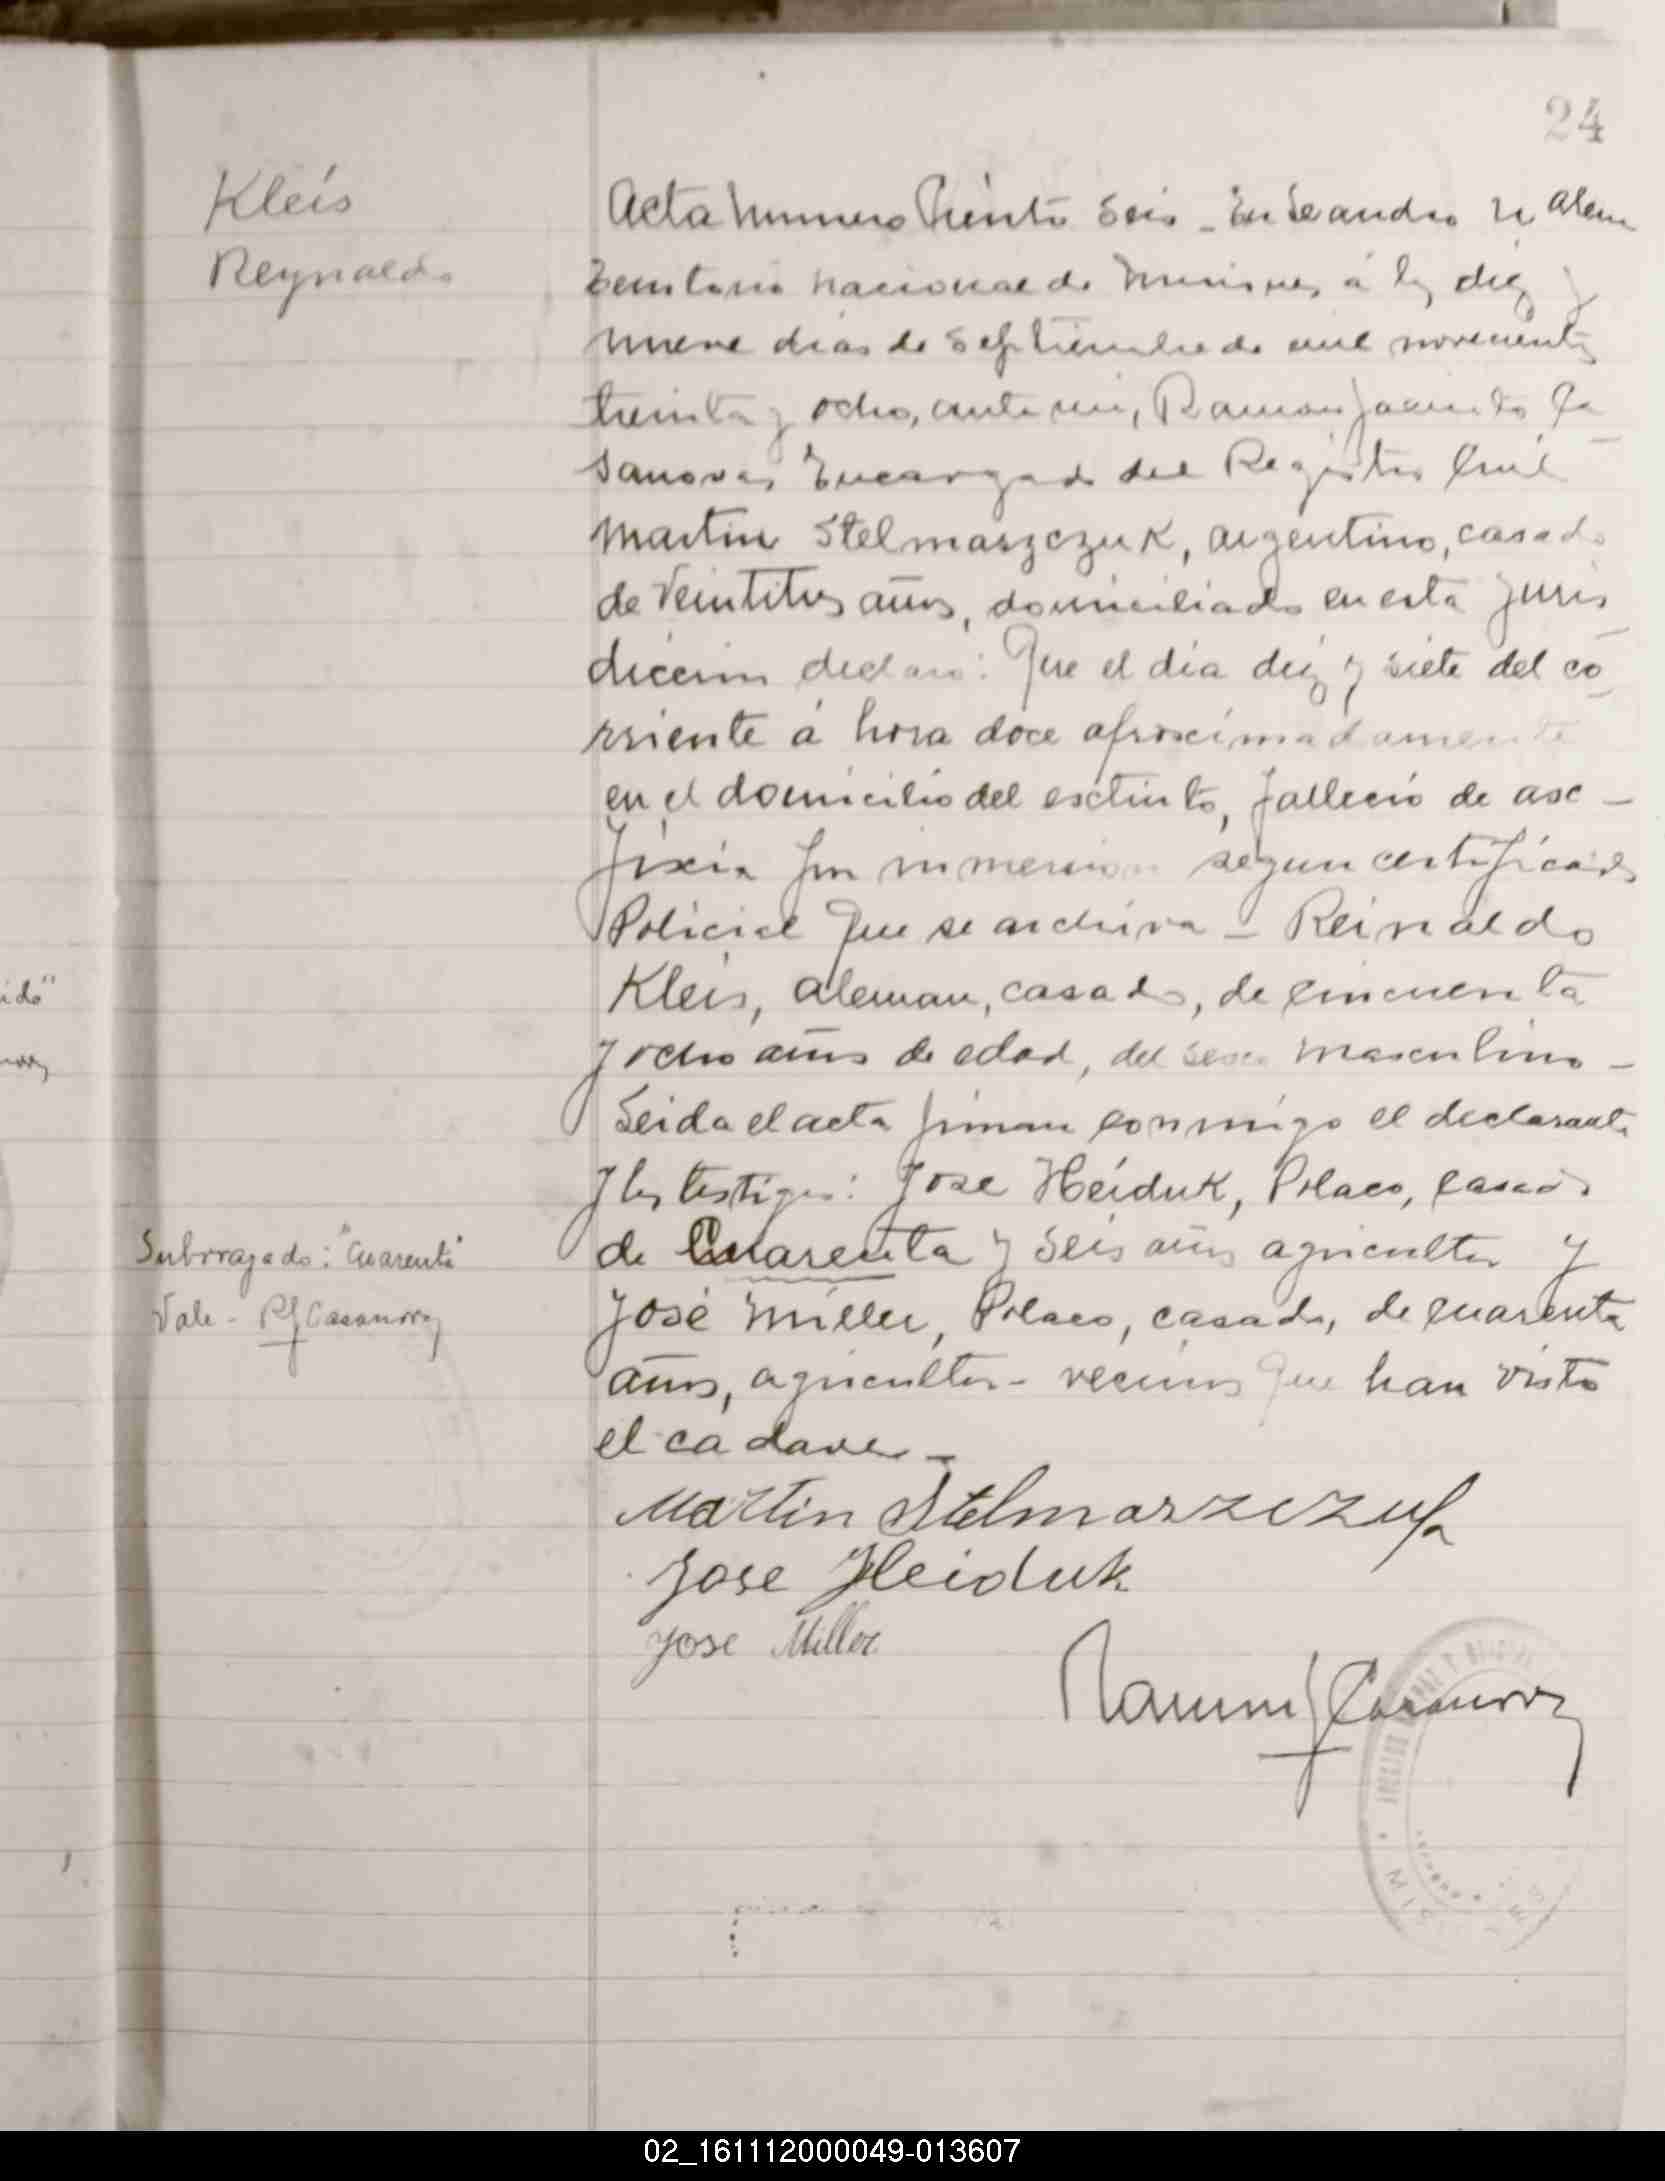 24
Kleis
Reynaldo
Acta Numero Ciento Seis - En Leandro N Alem
Territorio Nacional de Misiones, á los diez y
nueve dias de Septiembre de mil novecientos
treinta y ocho, ante mi, Ramon Jacinto Ca
sanovas Encargado del Registro Civil
Martin Stelmaszczuk, argentino, casado
de Veintitres años, domiciliado en esta juris
diccion declaro: Que el dia diez y siete del co
rriente á hora doce aproximadamente
en el domicilio del esctinto, fallecio de asc -
fixia por inmersion segun certificado
Policial que se archiva - Reinaldo
Kleis, aleman, casado, de cincuenta
y ocho años de edad, del sexo masculino -
Leida el acta firman conmigo el declarante
y los testigos: Jose Heiduk, Polaco, casado
de Cuarenta y seis años agricultor y
José Miller, Polaco, casado, de cuarenta
años, agricultor - vecinos que han visto
el cadaver -
Subrrayado: "Cuarenta"
Vale - RJCasanovas
Martin Stelmaszczuk
Jose Heiduk
Jose Miller
Ramon J Casanovas
MISIONES
ido"
02_161112000049-013607